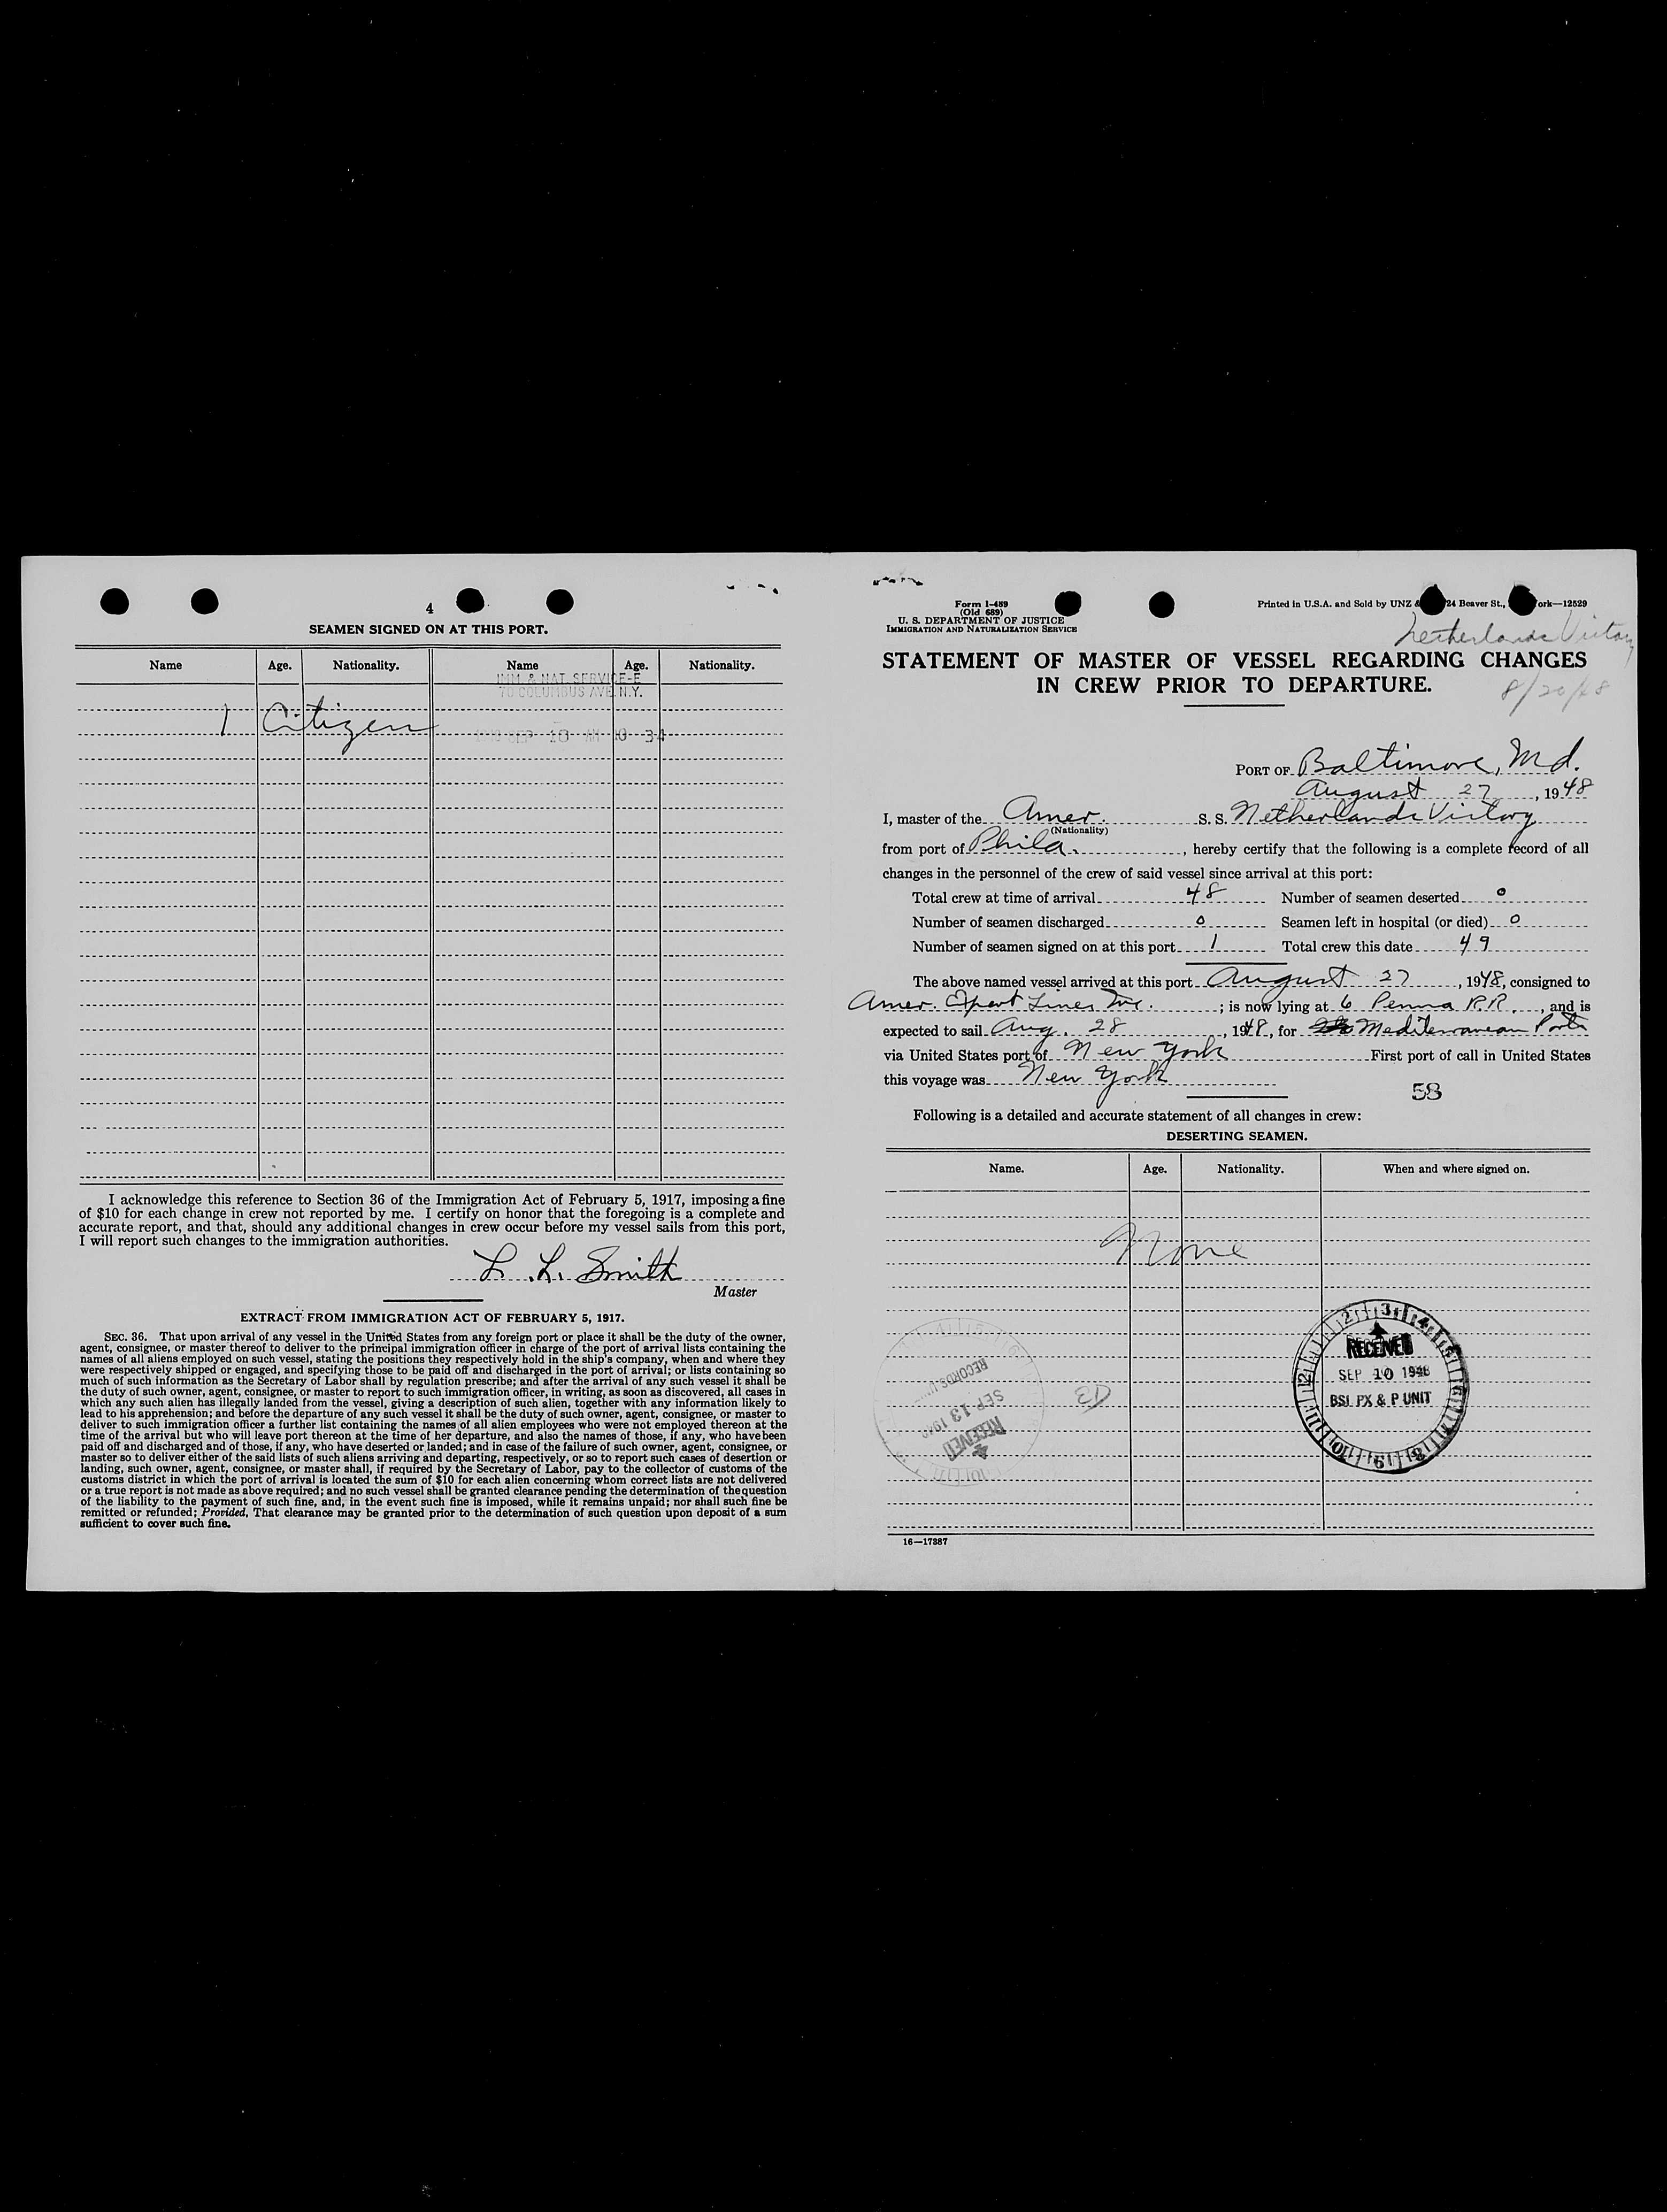 4
SEAMEN SIGNED ON AT THIS PORT.
Name Age. Nationality. Name Age. Nationality.
IMM. & NAT. SERVICE-E
70 COLUMBUS AVE. N.Y.
1 Citizen
SEP 10 AM 10 34
I acknowledge this reference to Section 36 of the Immigration Act of February 5, 1917, imposing a fine
of $10 for each change in crew not reported by me. I certify on honor that the foregoing is a complete and
accurate report, and that, should any additional changes in crew occur before my vessel sails from this port,
I will report such changes to the immigration authorities.
L. L. Smith
Master
EXTRACT FROM IMMIGRATION ACT OF FEBRUARY 5, 1917.
SEC. 36. That upon arrival of any vessel in the United States from any foreign port or place it shall be the duty of the owner,
agent, consignee, or master thereof to deliver to the principal immigration officer in charge of the port of arrival lists containing the
names of all aliens employed on such vessel, stating the positions they respectively hold in the ship's company, when and where they
were respectively shipped or engaged, and specifying those to be paid off and discharged in the port of arrival; or lists containing so
much of such information as the Secretary of Labor shall by regulation prescribe; and after the arrival of any such vessel it shall be
the duty of such owner, agent, consignee, or master to report to such immigration officer, in writing, as soon as discovered, all cases in
which any such alien has illegally landed from the vessel, giving a description of such alien, together with any information likely to
lead to his apprehension; and before the departure of any such vessel it shall be the duty of such owner, agent, consignee, or master to
deliver to such immigration officer a further list containing the names of all alien employees who were not employed thereon at the
time of the arrival but who will leave port thereon at the time of her departure, and also the names of those, if any, who have been
paid off and discharged and of those, if any, who have deserted or landed; and in case of the failure of such owner, agent, consignee, or
master so to deliver either of the said lists of such aliens arriving and departing, respectively, or so to report such cases of desertion or
landing, such owner, agent, consignee, or master shall, if required by the Secretary of Labor, pay to the collector of customs of the
customs district in which the port of arrival is located the sum of $10 for each alien concerning whom correct lists are not delivered
or a true report is not made as above required; and no such vessel shall be granted clearance pending the determination of the question
of the liability to the payment of such fine, and, in the event such fine is imposed, while it remains unpaid; nor shall such fine be
remitted or refunded; Provided, That clearance may be granted prior to the determination of such question upon deposit of a sum
sufficient to cover such fine.
Form I-489
(Old 689)
U. S. DEPARTMENT OF JUSTICE
IMMIGRATION AND NATURALIZATION SERVICE
Printed in U.S.A. and Sold by UNZ & 24 Beaver St., ork—12529
Netherlands Victory
STATEMENT OF MASTER OF VESSEL REGARDING CHANGES
IN CREW PRIOR TO DEPARTURE.
8/20/48
PORT OF Baltimore, Md.
August 27, 1948
I, master of the Amer. S. S. Netherlands Victory
(Nationality)
from port of Phila., hereby certify that the following is a complete record of all
changes in the personnel of the crew of said vessel since arrival at this port:
Total crew at time of arrival 48 Number of seamen deserted 0
Number of seamen discharged 0 Seamen left in hospital (or died) 0
Number of seamen signed on at this port 1 Total crew this date 49
The above named vessel arrived at this port August 27, 1948, consigned to
Amer. Export Lines Inc.; is now lying at 6 Penna R.R., and is
expected to sail Aug. 28, 1948, for Mediterranean Ports
via United States port of New York First port of call in United States
this voyage was New York
58
Following is a detailed and accurate statement of all changes in crew:
DESERTING SEAMEN.
Name. Age. Nationality. When and where signed on.
None
RECEIVED
SEP 10 1948
BSI PX & P UNIT
RECORDS
SEP 13
RECEIVED
16—17887